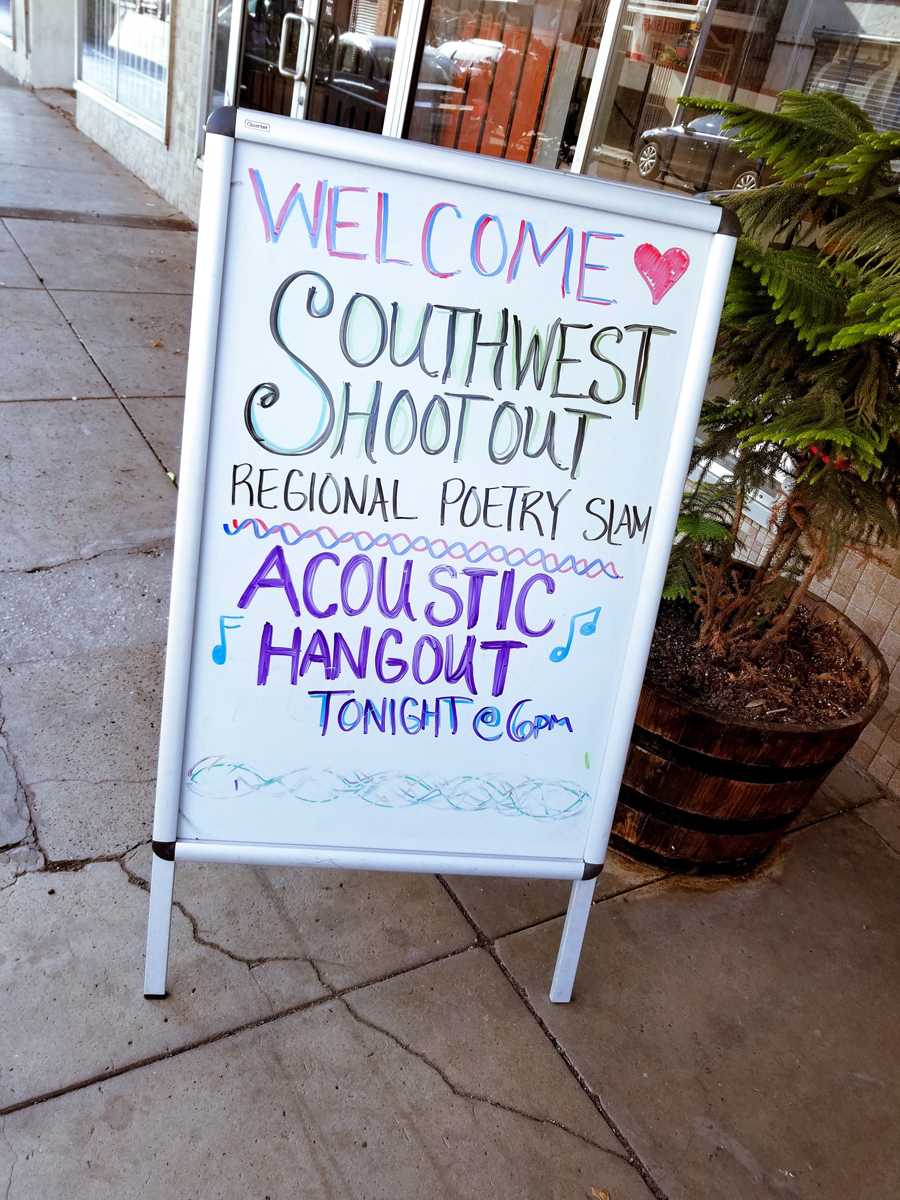 Quartet
WELCOME
SOUTHWEST
SHOOTOUT
REGIONAL POETRY SLAM
ACOUSTIC
HANGOUT
TONIGHT @ 6PM